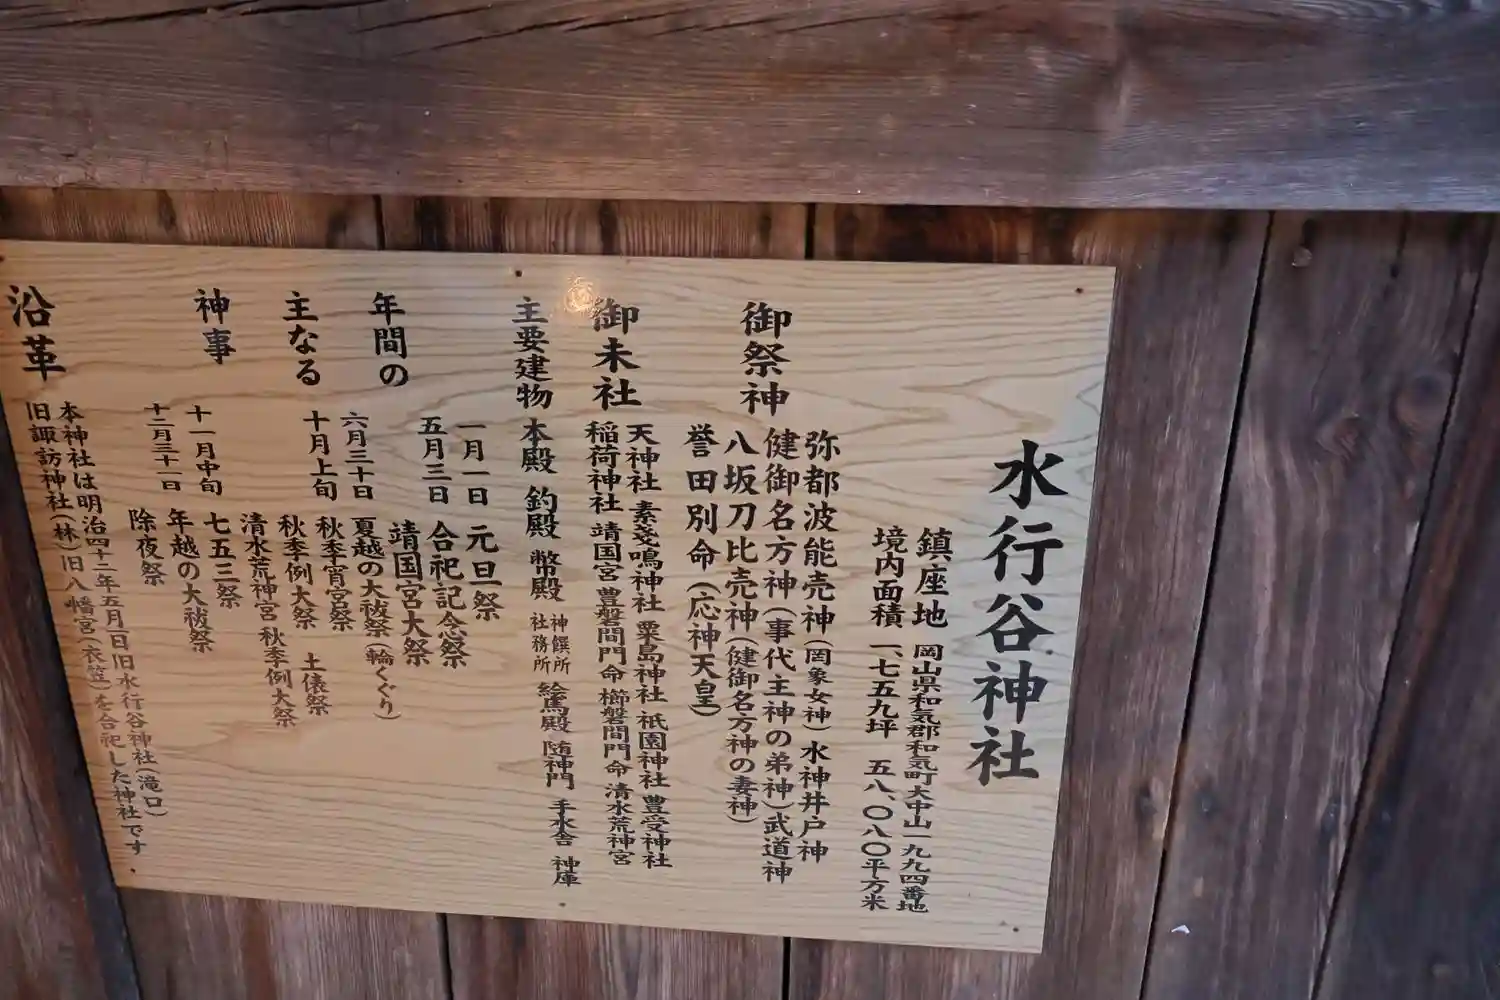 水行谷神社
鎮座地 岡山県和気郡和気町大中山一九九四番地
境内面積 一、七五九坪 五八、〇八〇平方米
御祭神
弥都波能売神(罔象女神)水神井戸神
健御名方神(事代主神の弟神)武道神
八坂刀比売神(健御名方神の妻神)
誉田別命(応神天皇)
御末社
天神社 素戔鳴神社 粟島神社 祇園神社 豊受神社
稲荷神社 靖国宮 豊磐間門命 櫛磐間門命 清水荒神宮
主要建物 本殿 釣殿 幣殿 神饌所 社務所 絵馬殿 随神門 手水舎 神庫
年間の
主なる
神事
一月一日 元旦祭
五月三日 合祀記念祭
靖国宮大祭
六月三十日 夏越の大祓祭(輪くぐり)
十月上旬 秋季宵宮祭
秋季例大祭 土俵祭
清水荒神宮 秋季例大祭
十一月中旬 七五三祭
十二月三十一日 年越の大祓祭
除夜祭
沿革
本神社は明治四十二年五月一日旧水行谷神社(滝口)
旧諏訪神社(林)旧八幡宮(衣笠)を合祀した神社です